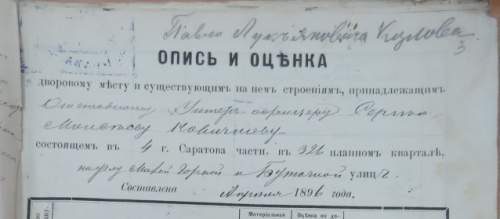 Павла Лукьяновича Козлова
3
ОПИСЬ И ОЦѢНКА
дворовому мѣсту и существующимъ на немъ строеніямъ, принадлежащимъ
Отставному Унтеръ офицеру Сергѣю
состоящемъ въ 4 г. Саратова части, въ 326 планномъ кварталѣ,
на углу Малой Горной и Буточной улицъ
Составлена Апрѣля 1896 года.
Матеріальная
Оцѣнка по до-